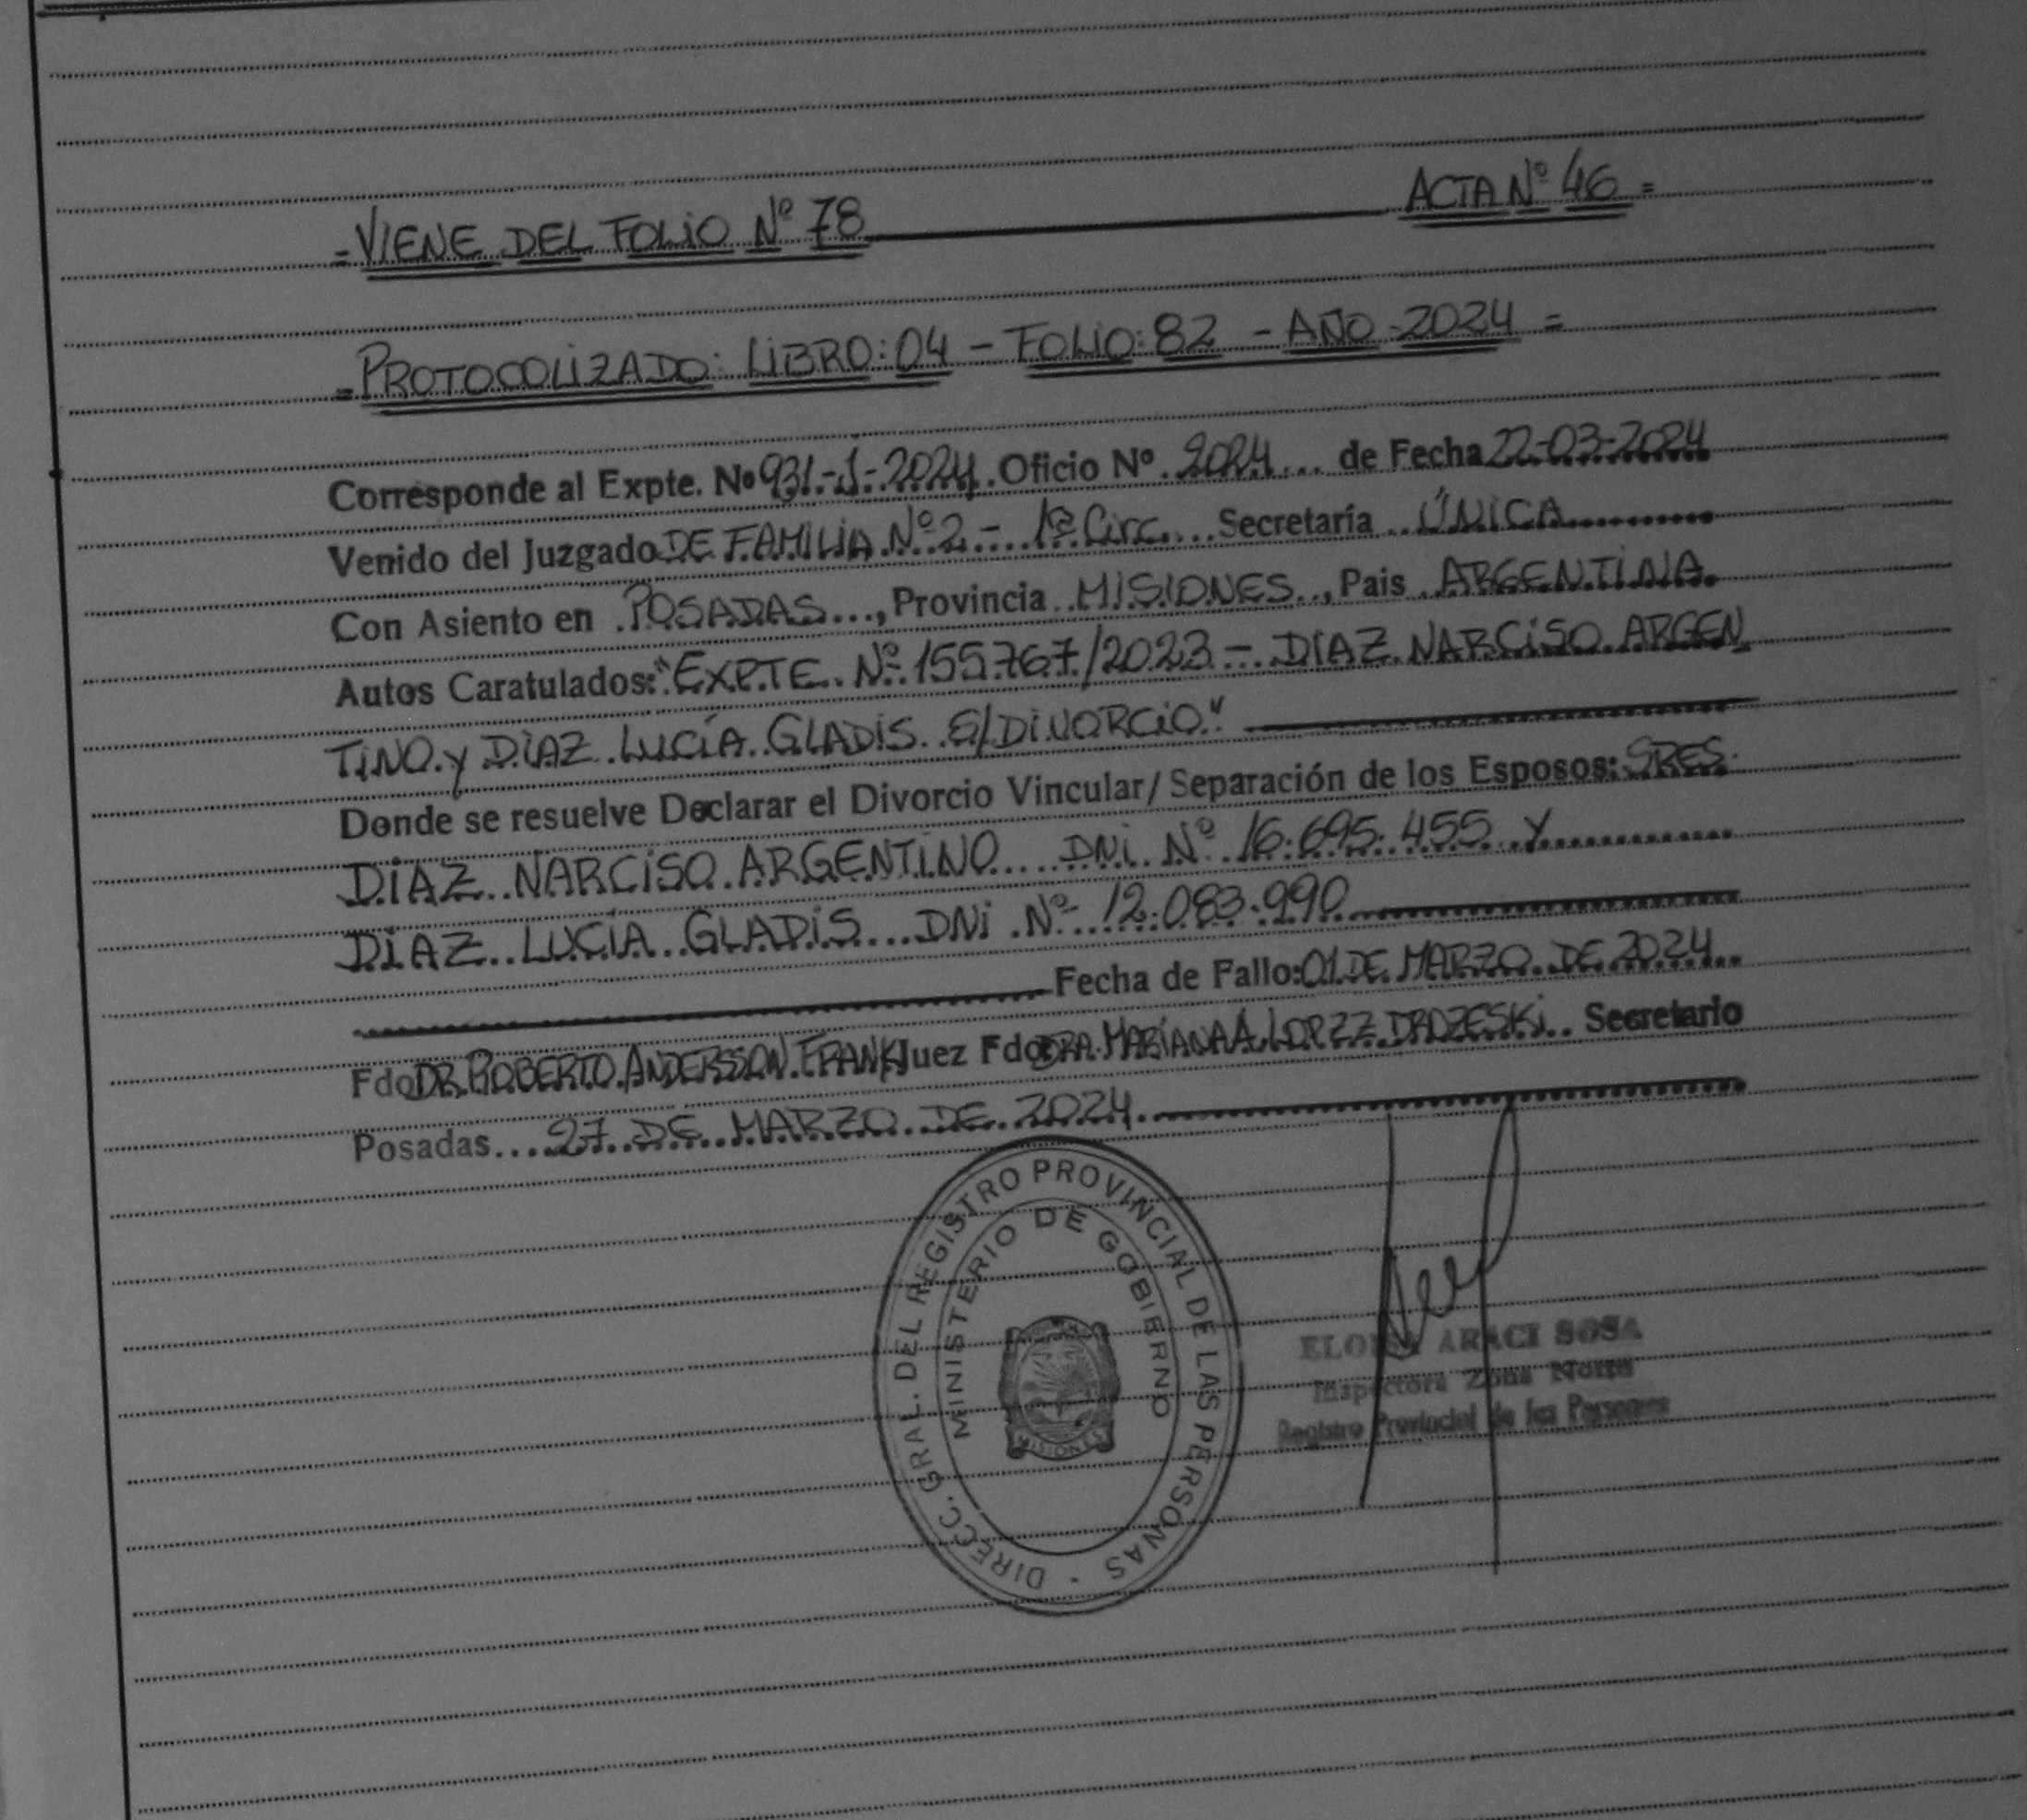 =VIENE DEL FOLIO Nº 78 ACTA Nº 46=
=PROTOCOLIZADO: LIBRO: 04 - FOLIO: 82 - AÑO 2024=
Corresponde al Expte. Nº 931-J-2024. Oficio Nº. 2024... de Fecha 22-03-2024
Venido del Juzgado DE FAMILIA Nº 2 - 1ª Circ... Secretaría ..ÚNICA
Con Asiento en .POSADAS..., Provincia ..MISIONES.., Pais .ARGENTINA.
Autos Caratulados: "EXPTE. Nº 155767/2023 - DIAZ NARCISO ARGEN
TINO y DIAZ LUCÍA GLADIS S/DIVORCIO"
Donde se resuelve Declarar el Divorcio Vincular/ Separación de los Esposos: SRES.
DIAZ NARCISO ARGENTINO... DNI Nº 16.695.455 Y
DIAZ LUCÍA GLADIS... DNI Nº 12.083.990
Fecha de Fallo: 01 DE MARZO DE 2024
Fdo DR. ROBERTO ANDERSSON FRANK Juez Fdo DRA. MARIANA A. LOPEZ DROZESKI.. Secretario
Posadas.... 27 DE MARZO DE 2024
DIRECC. GRAL. DEL REGISTRO PROVINCIAL DE LAS PERSONAS
MINISTERIO DE GOBIERNO
MISIONES
ELOISA ARACI SOSA
Inspectora Zona Norte
Registro Provincial de las Personas